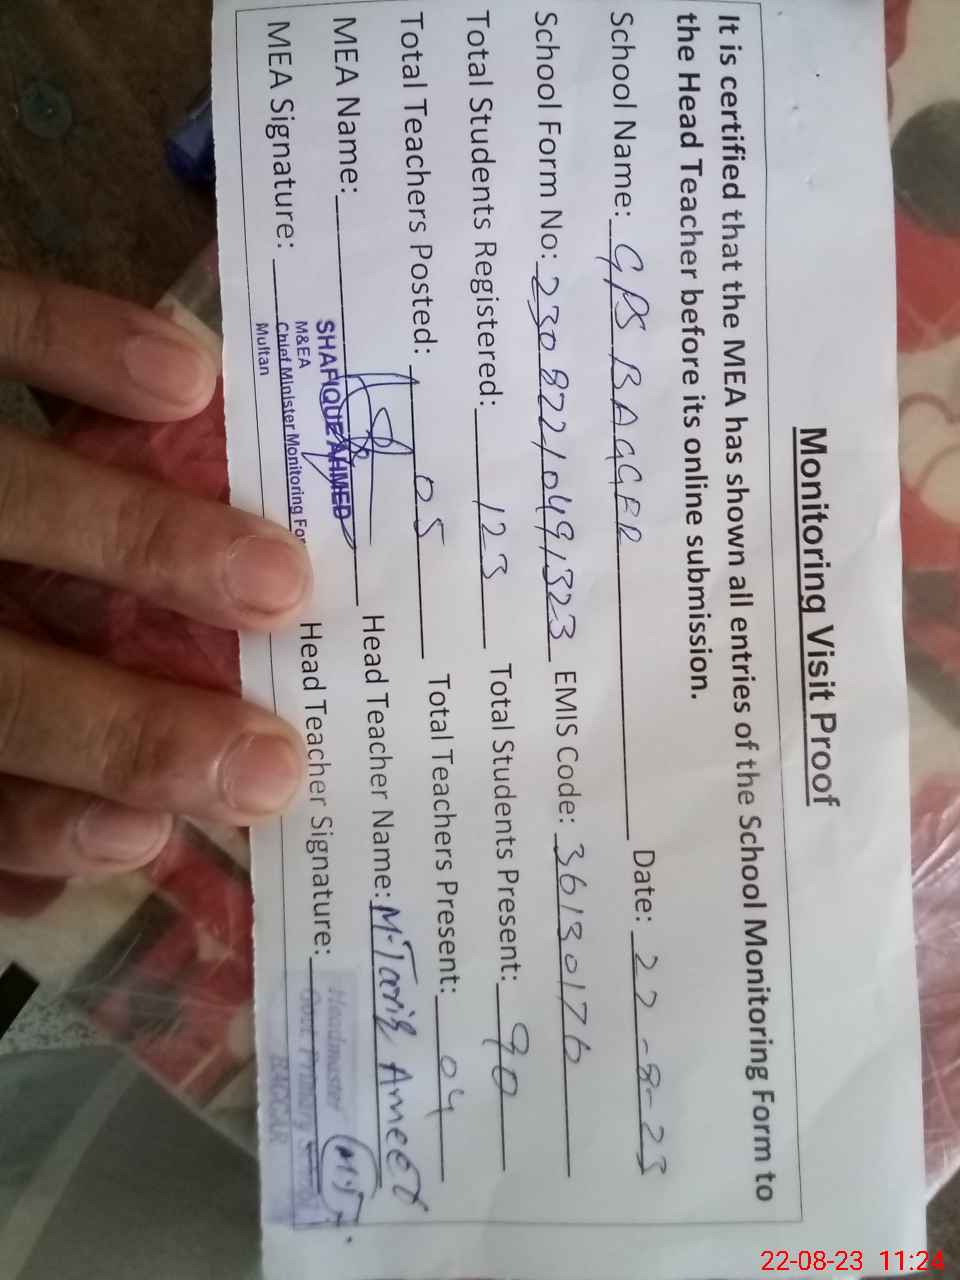 Monitoring Visit Proof
It is certified that the MEA has shown all entries of the School Monitoring Form to
the Head Teacher before its online submission.
School Name: GPS BAGGER Date: 22-8-23
School Form No: 23082210491323 EMIS Code: 36130176
Total Students Registered: 123 Total Students Present: 90
Total Teachers Posted: 05 Total Teachers Present: 04
MEA Name: Head Teacher Name: M-Tariq Ameer
SHAFIQUE AHMED
MEA Signature: Head Teacher Signature:
M&EA
Chief Minister Monitoring For
Multan
Headmaster
Govt. Primary
BAGGAR
M.T
22-08-23 11:24